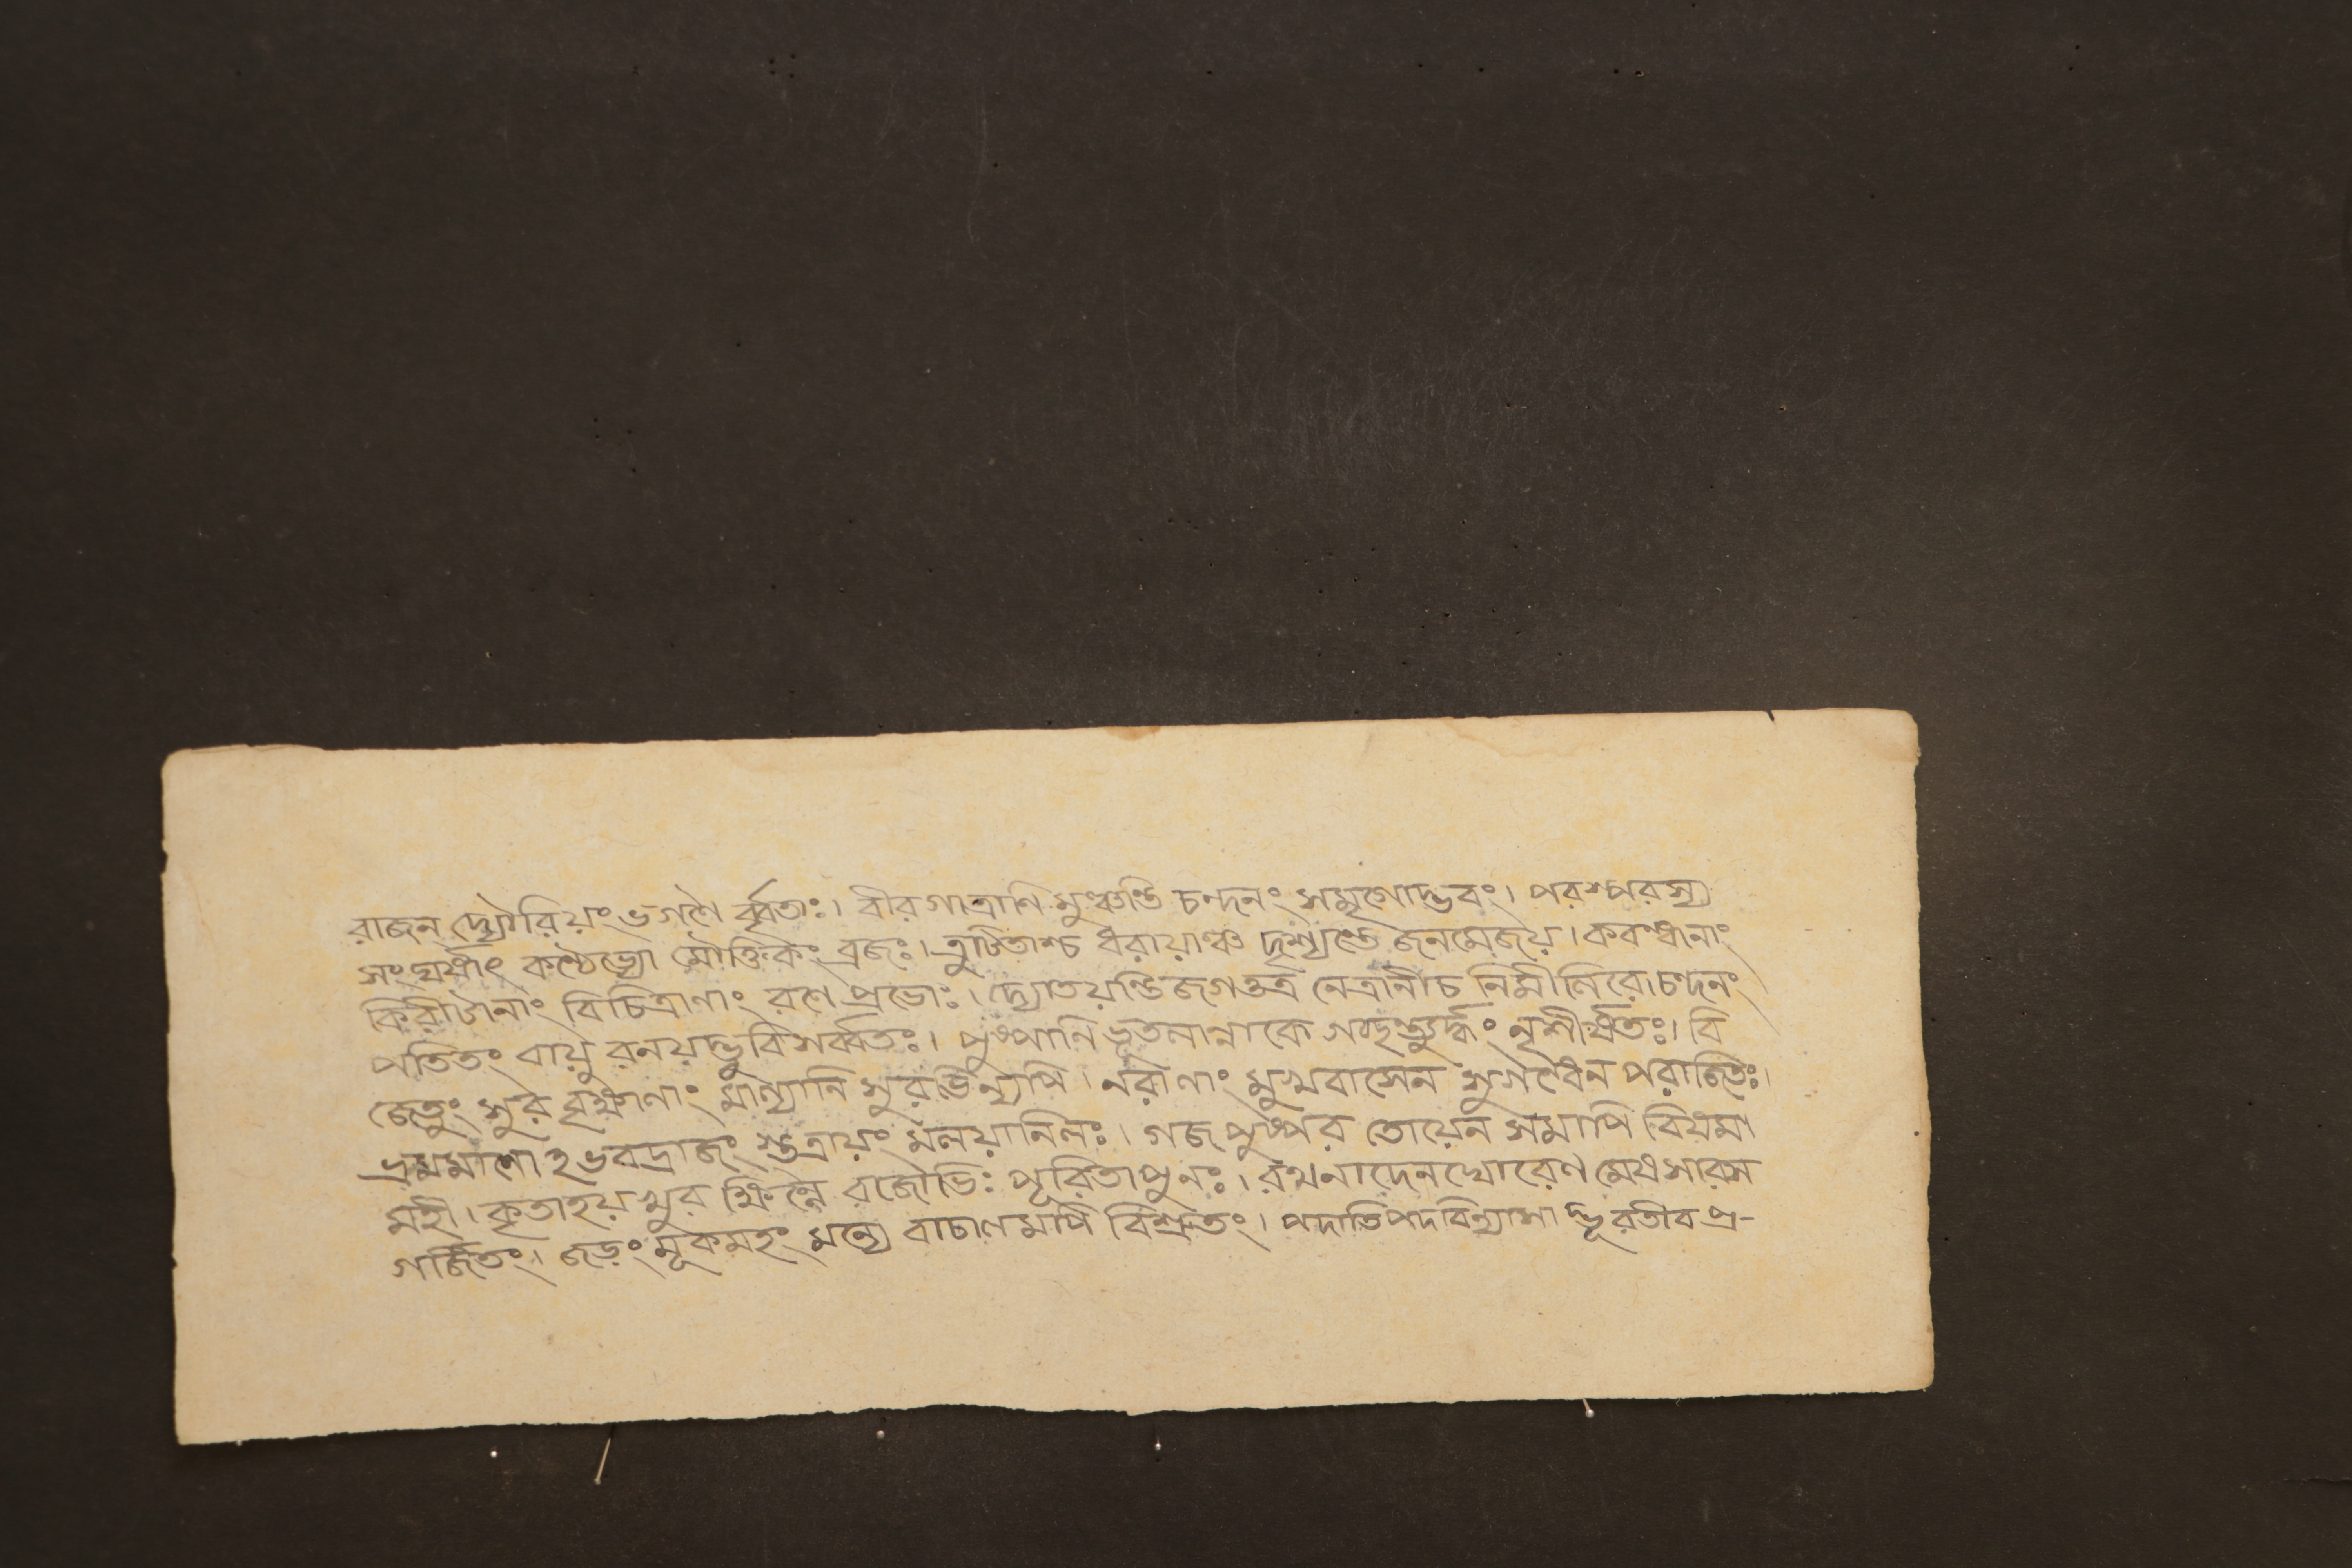 রাজন দ্যৌরিয়ং ভগণৈ র্ব্বৃতাঃ। বীর গাত্রাণি মুঞ্চন্তি চন্দনং সমৃগোদ্ভবং। পরস্পরস্য
সংঘর্ষাৎ কণ্ঠেভ্যো মৌক্তিকং ব্রজঃ। ত্রুটিতাশ্চ ধরায়াঞ্চ দৃশ্যন্তে জনমেজয়। কবন্ধানাং
কিরীটানাং বিচিত্রাণাং রণে প্রভোঃ। দ্যোতয়ন্তি জগত্তত্র নেত্রানীচ নিমীলিরে। চন্দনং
পতিতং বায়ু রনয়দ্ভুবি সর্ব্বতঃ। পুষ্পানি ভূতলান্নাকে নৃশীর্ষতঃ। বি
জেতুং সুর বৃক্ষাণাং মাল্যানি সুরভিন্যপি। নরাণাং মুখবাসেন সুগন্ধেন পরাজিতঃ।
ভ্রমমাণো ঽভবদ্রাজং স্তত্রায়ং মলয়ানিলঃ। গজ পুষ্কর তোয়েন সমাপি বিষমা
মহী। কৃতাহয় খুর ক্ষিন্নৈ রজোভিঃ পূরিতাপুনঃ। রথনাদেনঘোরেণ মেঘসারস
গর্জিতং। জড়ং মূকমহং মন্যে বাচালমপি বিশ্রুতং। পদাতিপদবিন্যাসা দ্ভূরতীব প্র-